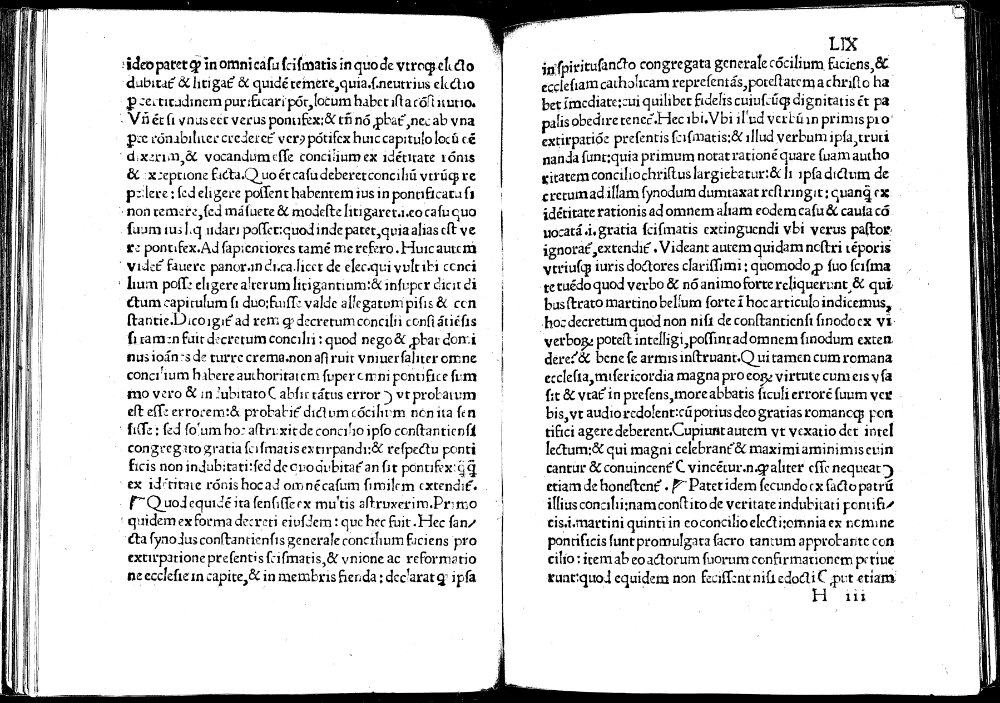 ideo patet ꝙ in omni casu scismatis in quo de vtroqꝫ electo
dubitat᷑ & litigat᷑ & quidē temere, quia.s.neutrius electio
ꝑ certitudinem purificari pōt, locum habet ista cōstitutio.
Vñ et si vnus eet verus pontifex: & tñ nō ꝓbat᷑, nec ab vna
ꝑte rōnabiliter crederet᷑ verꝰ pōtifex huic capitulo locū cē
dixerim, & vocandum esse concilium ex idētitate rōnis
& exceptione ficta. Quo et casu deberet conciliū vtrūqꝫ re
pellere: sed eligere possent habentem ius in pontificatu si
non temere, sed māsuete & modeste litigaret.i.eo casu quo
suum ius liquidari posset: quod inde patet, quia alias est ve
re pontifex. Ad sapientiores tamē me refero. Huic autem
videt᷑ fauere panor. in di.ca.licet de elec. qui vult ibi conci
lium posse eligere alterum litigantium: & insuper dicit di
ctum capitulum si duo: fuisse valde allegatum pisis & con
stantie. Dico igit᷑ ad rem ꝙ decretum concilii constātiēsis
si tamen fuit decretum concilii: quod nego & ꝓbar domi
nus ioānes de turre crema. non astruit vniuersaliter omne
concilium habere authoritatem super omni pontifice sum
mo vero & indubitato (absit tātus error) vt probatum
est esse errorem: & probabit᷑ dictum cōcilium non ita sen
sisse: sed solum hoc astruxit de concilio ipso constantiensi
congregato gratia scismatis extirpandi: & respectu ponti
ficis non indubitati: sed de quo dubitat᷑ an sit pontifex:
ex idētitate rōnis hoc ad omnē casum similem extendit᷑.
Quod equidē ita sensisse ex multis astruxerim. Primo
quidem ex forma decreti eiusdem: que hec fuit. Hec san
cta synodus constantiensis generale concilium faciens pro
extirpatione presentis scismatis, & vnione ac reformatio
ne ecclesie in capite, & in membris fienda: declarat ꝙ ipsa
LIX
in spiritusancto congregata generale cōcilium faciens, &
ecclesiam catholicam representās, potestatem a christo ha
bet īmediate: cui quilibet fidelis cuiuscūqꝫ dignitatis et pa
palis obedire tenet᷑. Hec ibi. Vbi illud verbū in primis pro
extirpatiōe presentis scismatis: & illud verbum ipsa, truti
nanda sunt: quia primum notat rationē quare suam autho
ritatem concilio christus largiebatur: & li ipsa dictum de
cretum ad illam synodum dumtaxat restringit: quanqꝫ ex
idētitate rationis ad omnem aliam eodem casu & causa cō
uocatā.i.gratia scismatis extinguendi vbi verus pastor
ignorat᷑, extendit᷑. Videant autem quidam nostri tēporis
vtriusqꝫ iuris doctores clarissimi: quomodo ꝓ suo scisma
te tuēdo quod verbo & nō animo forte reliquerunt, & qui
bus strato martino bellum forte ī hoc articulo indicemus,
hoc decretum quod non nisi de constantiensi sinodo ex vi
verboꝝ potest intelligi, possint ad omnem sinodum exten
dere: & bene se armis instruant. Qui tamen cum romana
ecclesia, misericordia magna pro eoꝝ virtute cum eis vsa
sit & vtat᷑ in presens, more abbatis siculi errorē suum ver
bis, vt audio redolent: cū potius deo gratias romanoqꝫ pon
tifici agere deberent. Cupiunt autem vt vexatio det intel
lectum: & qui magni celebrant᷑ & maximi a minimis euin
cantur & conuincent᷑ (vincētur.n.ꝙ aliter esse nequeat)
etiam de honestent᷑. Patet idem secundo ex facto patrū
illius concilii: nam constito de veritate indubitati pontifi
cis.i.martini quinti in eo concilio electi: omnia ex nomine
pontificis sunt promulgata sacro tantum approbante con
cilio: item ab eo actorum suorum confirmationem petiue
runt: quod equidem non fecissent nisi edocti (put etiam
H iii